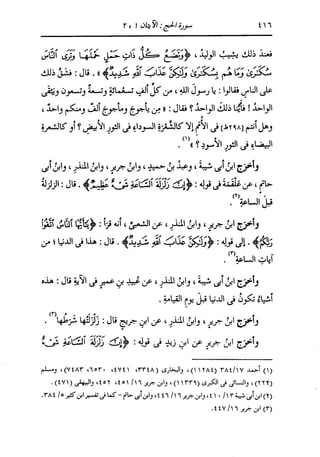 ٤١٦ سورة الحج: الآيتان ١، ٢
فعند ذلك يشيب الوليد، ﴿وَتَضَعُ كُلُّ ذَاتِ حَمْلٍ حَمْلَهَا وَتَرَى النَّاسَ
سُكَارَى وَمَا هُم بِسُكَارَى وَلَٰكِنَّ عَذَابَ اللَّهِ شَدِيدٌ﴾». قال: فشقَّ ذلك
على الناس فقالوا: يا رسول الله، من كل ألف تسعمائة وتسعة وتسعون ويبقى
الواحد! فأينا ذلك الواحد؟ فقال: «من يأجوج ومأجوج ألف ومنكم واحد،
وهل أنتم [٢٩٨ظ] فى الأمم إلا كالشعرة السوداء فى الثور الأبيض؟ أو كالشعرة
البيضاء فى الثور الأسود؟»(١).
وأخرج ابن أبى شيبة، وعبد بن حميد، وابن جرير، وابن المنذر، وابن أبى
حاتم، عن علقمة فى قوله: ﴿إِنَّ زَلْزَلَةَ السَّاعَةِ شَىْءٌ عَظِيمٌ﴾. قال: الزلزلة
قبل الساعة(٢).
وأخرج ابن جرير، وابن المنذر، عن الشعبى، أنه قرأ: ﴿يَا أَيُّهَا النَّاسُ اتَّقُوا
رَبَّكُمْ﴾. إلى قوله: ﴿وَلَٰكِنَّ عَذَابَ اللَّهِ شَدِيدٌ﴾. قال: هذا فى الدنيا؛ من
آيات الساعة(٣).
وأخرج ابن أبى شيبة، وابن المنذر، عن عبيد بن عمير فى الآية قال: هذه
أشياء تكون فى الدنيا قبل يوم القيامة.
وأخرج ابن جرير، وابن المنذر، عن ابن جريج قال: زلزلتها شرطها(٣).
وأخرج ابن جرير عن ابن زيد فى قوله: ﴿إِنَّ زَلْزَلَةَ السَّاعَةِ شَىْءٌ
(١) أحمد ٣٨٤/١٧ (١١٢٨٤)، والبخارى (٣٣٤٨، ٤٧٤١، ٦٥٣٠، ٧٤٨٣)، ومسلم
(٢٢٢)، والنسائى فى الكبرى (١١٣٣٩)، وابن جرير ٤٥١/١٦، ٤٥٢، والبيهقى (٤٧١).
(٢) ابن أبى شيبة ٤١٠/١٣، وابن جرير ٤٤٦/١٦، وابن أبى حاتم - كما فى تفسير ابن كثير ٣٨٤/٥.
(٣) ابن جرير ٤٤٧/١٦.